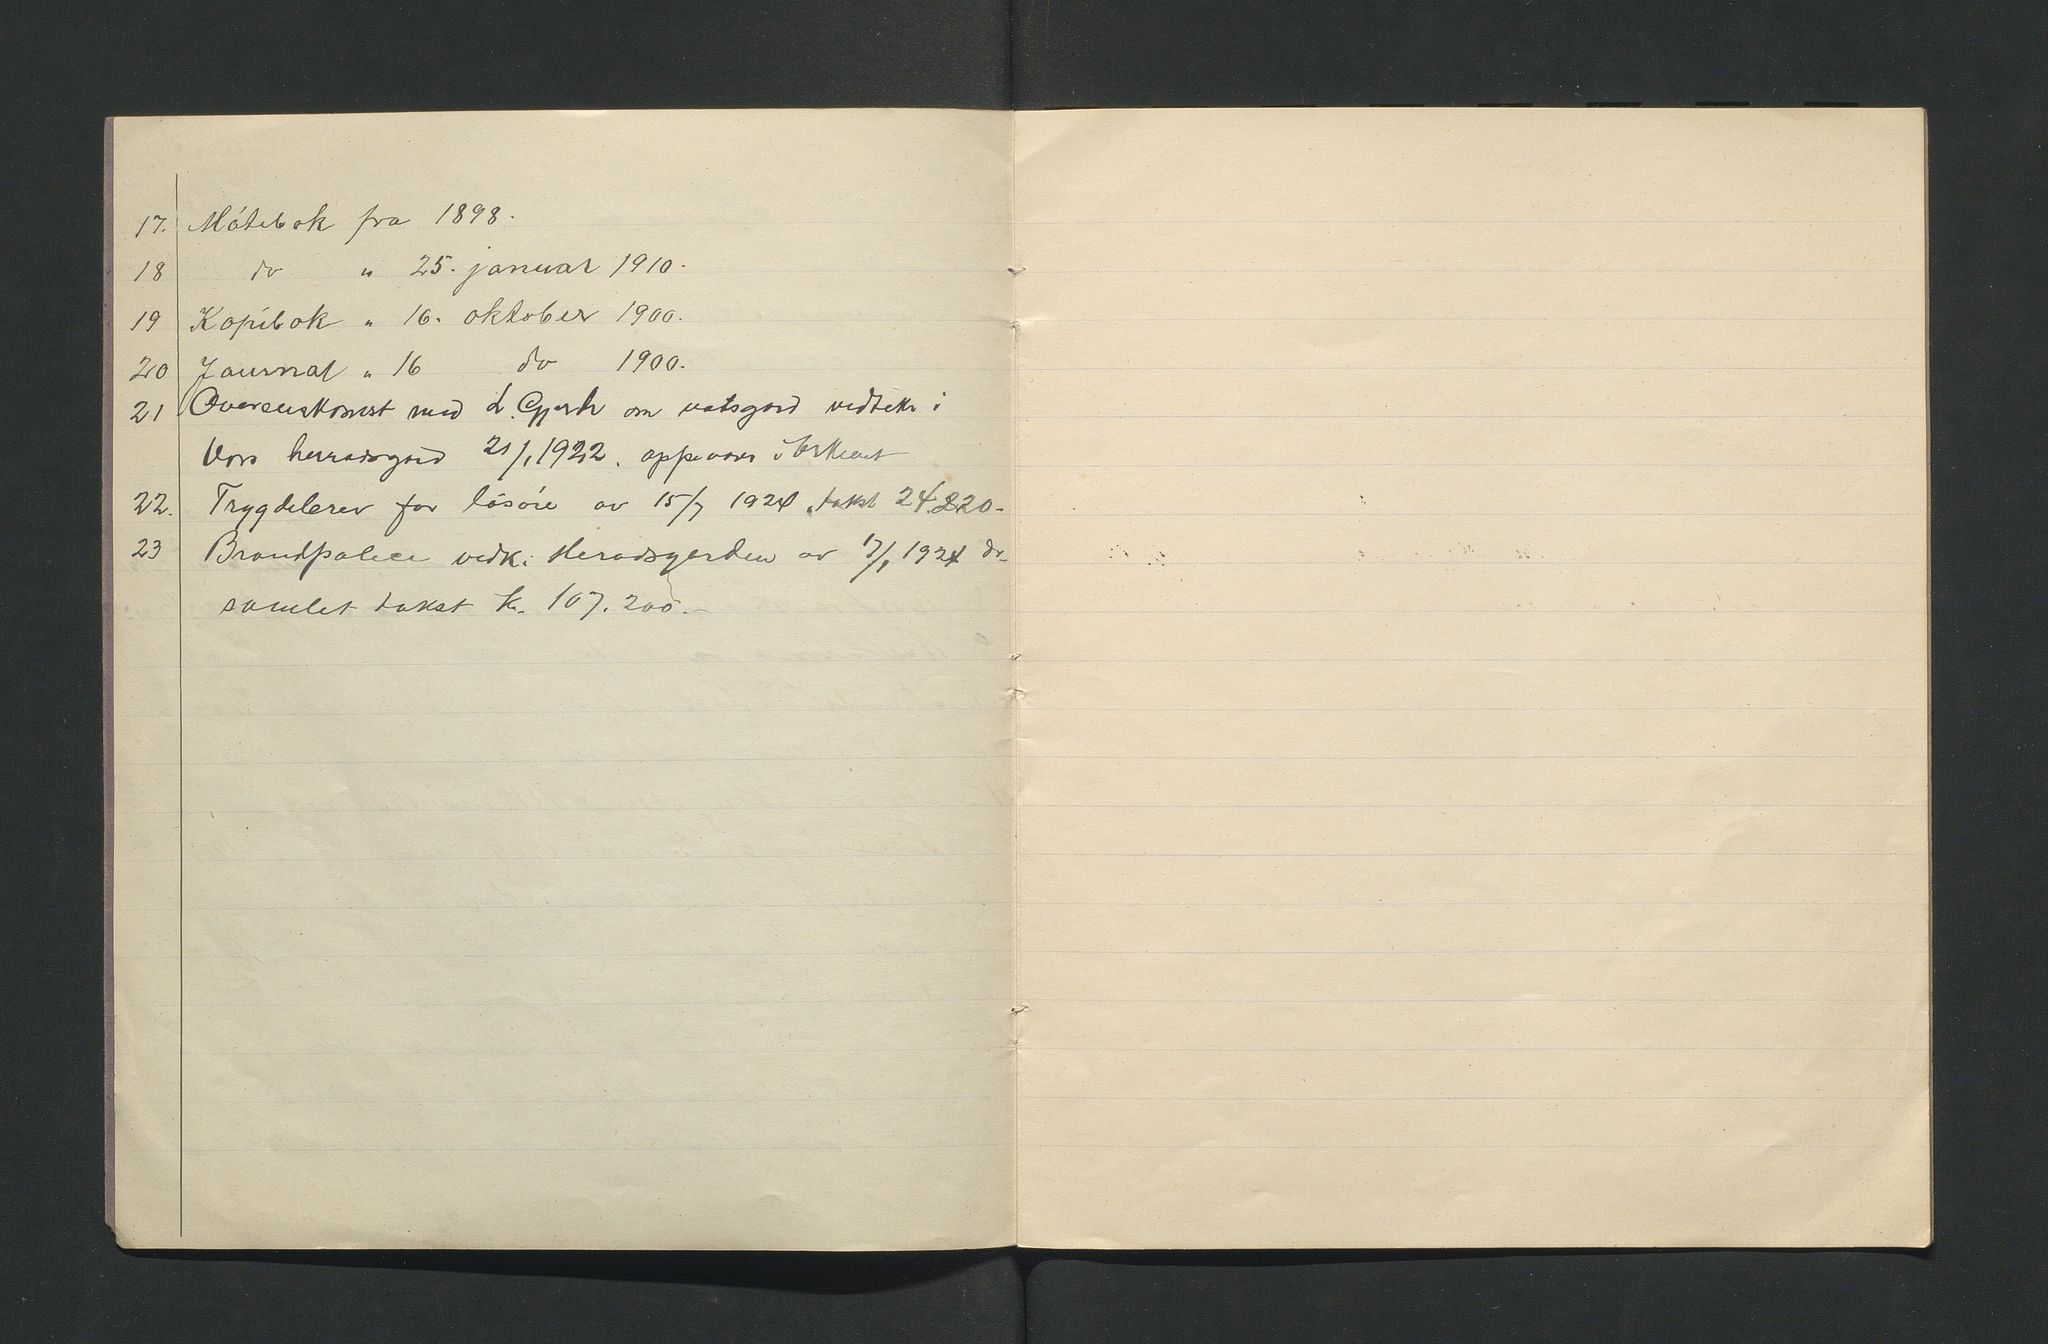 17. Mötebok fra 1898.
18 do " 25. januar 1910.
19 Kopibok " 16. oktober 1900.
20 Journal " 16 do 1900.
21 Overenskomst med L. Gjerde om vatsgard vedtekt i
Vors herradsgard 21/1 1922. i
22. Trygdebrev for lösöre av 15/7 1924 takst 24.220-
23 Brandpolice vedk. Heradsgarden av 17/1 1924
samlet takst kr. 107.200.-